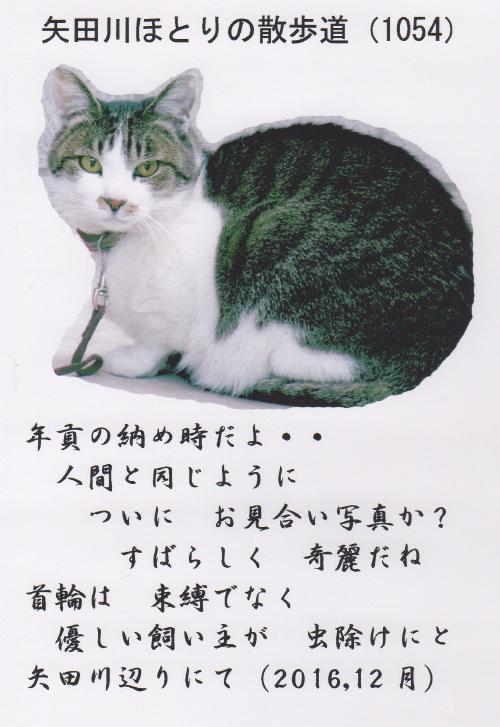 矢田川ほとりの散歩道（1054）
年貢の納め時だよ・・
人間と同じように
ついに　お見合い写真か？
すばらしく　奇麗だね
首輪は　束縛でなく
優しい飼い主が　虫除けにと
矢田川辺りにて（2016,12月）